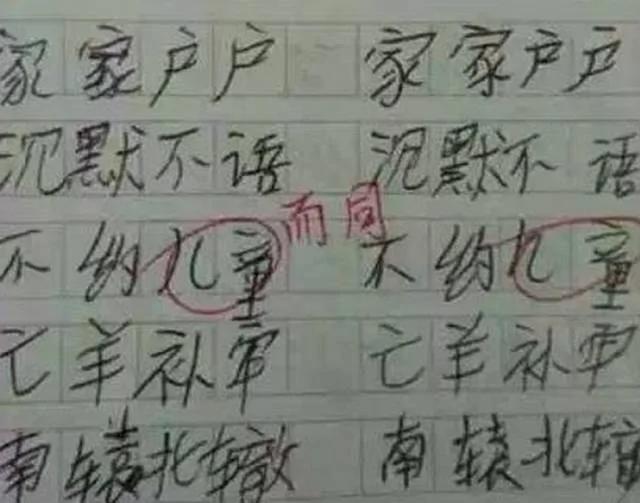 家家户户 家家户户
沉默不语 沉默不语
而同
不约儿童 不约儿童
亡羊补牢 亡羊补牢
南辕北辙 南辕北辙